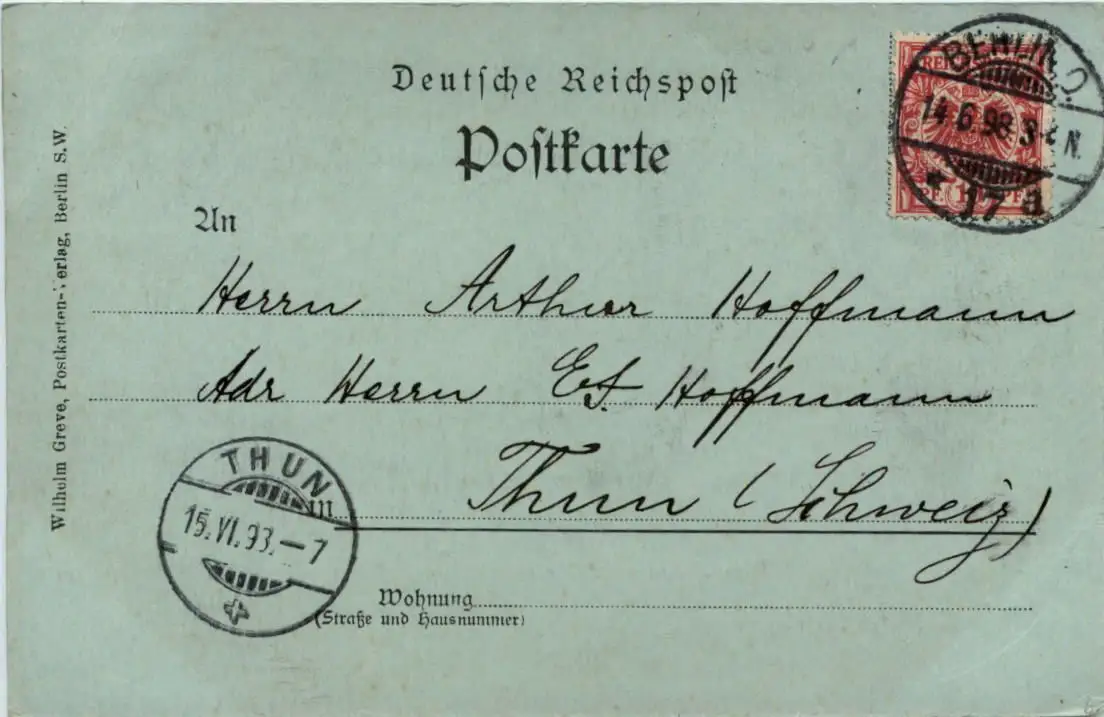 Deutsche Reichspost
Postkarte
BERLIN O.
14.6.98.3-4 N.
* 17 a
An
Herrn Arthur Hoffmann
Adr Herrn Ed. Hoffmann
in Thun (Schweiz)
THUN
15.VI.98.–7
Wohnung
(Straße und Hausnummer)
Wilhelm Greve, Postkarten-Verlag, Berlin S.W.